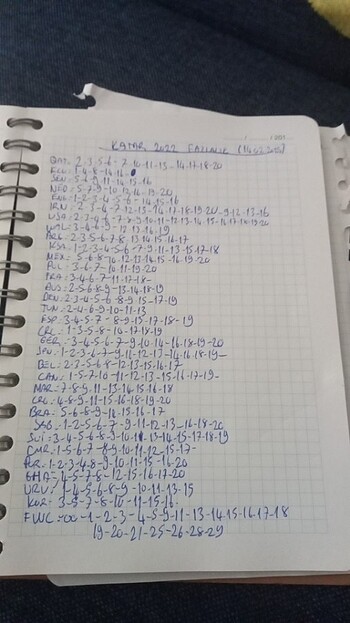 KATAR 2022 FAZLALIK
QAT: 2-3-5-6-7-10-11-15-14-17-18-20
ECU: 1-4-8-14-16
SEN: 5-4-9-11-14-15-16
NED: 5-7-9-10-13-14-19-20
ENG: 1-2-3-4-5-6-14-15-16
IRN: 2-3-4-9-12-13-14-17-18-19-20
USA: 2-3-4-6-7-8-9-10-11-12-13-14-15-16-17-18-19-20
WAL: 3-4-6-9-12-13-16-19
ARG: 2-3-5-6-7-8-13-14-15-16-17
KSA: 1-2-3-4-5-6-7-9-11-13-15-17-18
MEX: 5-6-8-10-12-13-14-15-16-19-20
POL: 3-6-7-10-11-19-20
FRA: 3-4-6-7-11-17-18-
AUS: 2-5-6-8-9-13-14-18-19
DEN: 2-3-4-5-6-8-9-15-17-19
TUN: 2-4-6-9-10-11-13
ESP: 3-4-5-7-8-9-15-17-18-19
CRC: 1-3-5-8-10-17-18-19
GER: 3-4-5-6-7-9-10-14-16-18-19-20
JPN: 1-2-3-6-7-9-11-12-13-14-16-18-19-
BEL: 2-3-5-6-8-12-13-15-16-17
CAN: 1-5-7-10-11-12-13-15-16-17-19-
MAR: 7-8-9-11-13-14-15-16-18
CRO: 4-8-9-11-15-16-18-19-20
BRA: 5-6-8-9-12-15-16-17
SRB: 1-2-5-6-7-9-11-12-13-16-18-20
SUI: 3-4-5-6-8-9-10-11-13-14-15-17-18-19
CMR: 1-5-6-7-8-9-10-11-12-15-17-
POR: 1-2-3-4-8-9-10-11-15-16-20
GHA: 4-5-7-8-12-15-16-17-20
URU: 1-4-5-6-8-9-10-11-13-15
KOR: 3-5-7-8-10-11-15-16
FWC: 00-1-2-3-4-5-9-11-13-14-15-16-17-18
19-20-21-25-26-28-29